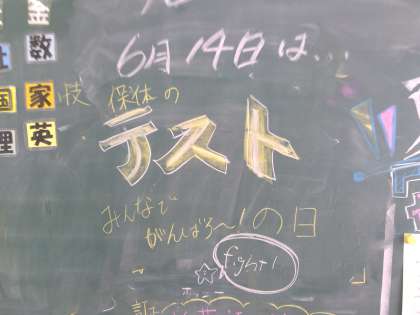 金
6月14日は...
社 数
国 家 技
保体の
理 英
テスト
みんなで
がんばろ〜!の日
☆ fight!